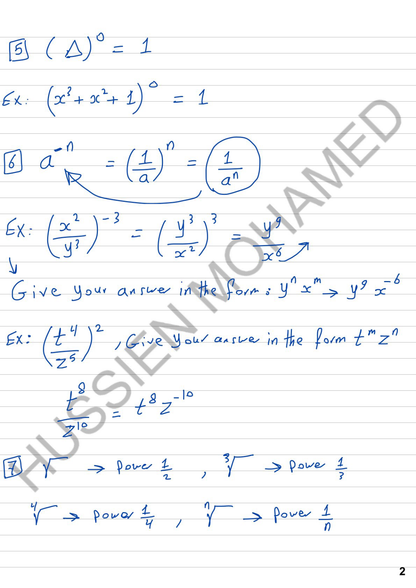 5 (△)⁰ = 1
Ex: (x³ + x² + 1)⁰ = 1
6 a⁻ⁿ = (1/a)ⁿ = 1/aⁿ
Ex: (x²/y³)⁻³ = (y³/x²)³ = y⁹/x⁶
Give your answer in the form: yⁿ xᵐ → y⁹ x⁻⁶
Ex: (t⁴/z⁵)², Give your answer in the form tᵐ zⁿ
t⁸/z¹⁰ = t⁸ z⁻¹⁰
7 √ → Power 1/2 , ³√ → Power 1/3
⁴√ → Power 1/4 , ⁿ√ → Power 1/n
HUSSIEN MOHAMED
2